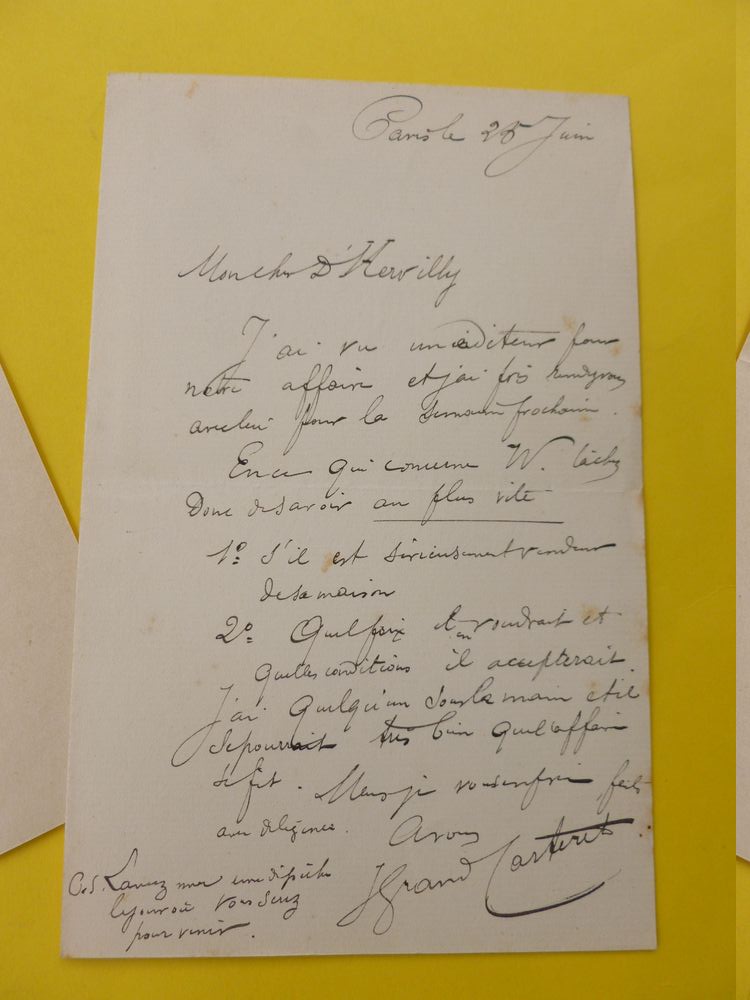 Paris le 25 Juin
Mon cher D'Hervilly
J'ai vu un éditeur pour
notre affaire et j'ai pris rendezvous
avec lui pour la semaine prochaine.
En ce qui concerne W. tâchez
Donc de savoir au plus vite
1º S'il est sérieusement vendeur
de sa maison
2º Quel prix il en voudrait et
quelles conditions il accepterait.
J'ai quelqu'un sous la main et il
se pourrait très bien que l'affaire
se fit. Mais je vous en prie faites
avec diligence. A vous
J Grand Carteret
P.S. Lancez moi une dépêche
le jour où vous serez
pour venir.